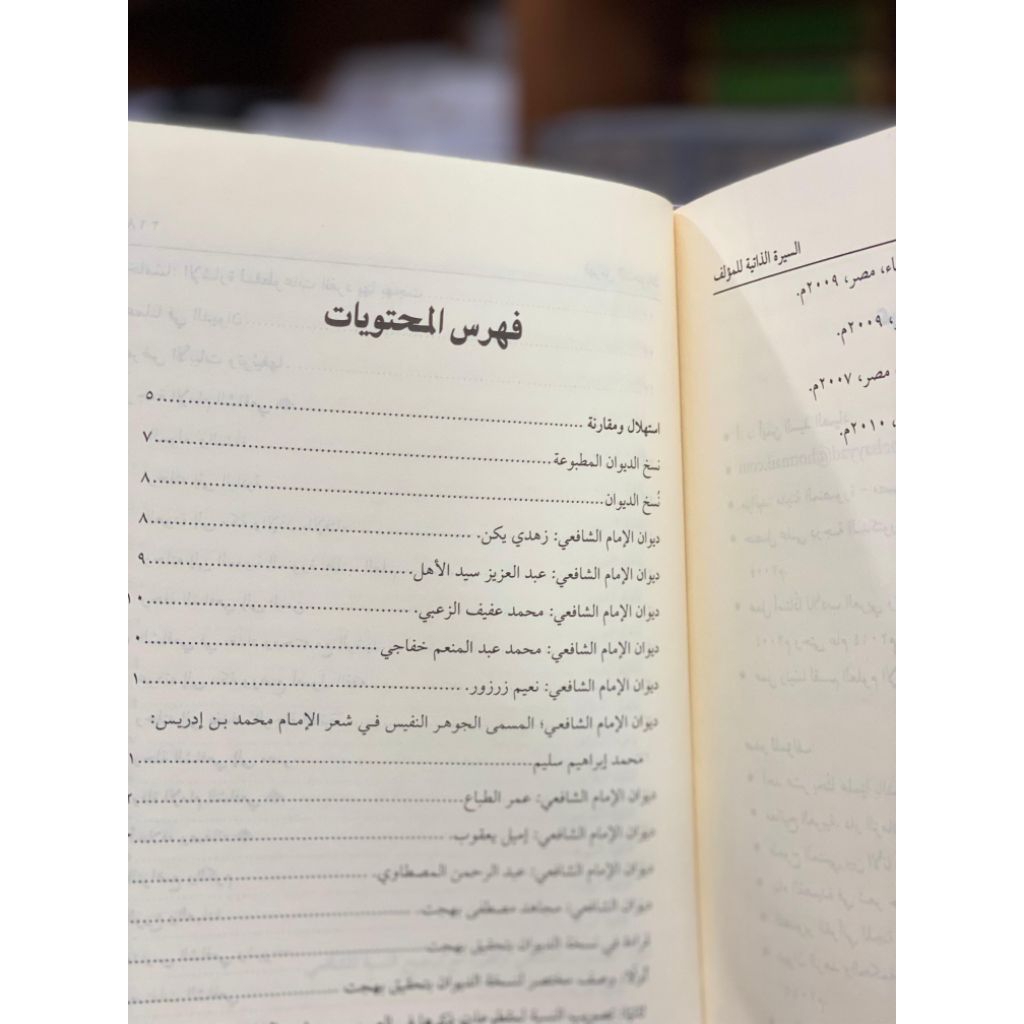 السيرة الذاتية للمؤلف
مصر، ٢٠٠٩م.
٢٠٠٩م.
مصر، ٢٠٠٧م.
٢٠١٠م.
فهرس المحتويات
استهلال ومقارنة ........ ٥
نسخ الديوان المطبوعة ........ ٧
نُسخ الديوان ........ ٨
ديوان الإمام الشافعي: زهدي يكن. ........ ٨
ديوان الإمام الشافعي: عبد العزيز سيد الأهل. ........ ٩
ديوان الإمام الشافعي: محمد عفيف الزعبي. ........ ١٠
ديوان الإمام الشافعي: محمد عبد المنعم خفاجي ........
ديوان الإمام الشافعي: نعيم زرزور. ........
ديوان الإمام الشافعي؛ المسمى الجوهر النفيس في شعر الإمام محمد بن إدريس:
محمد إبراهيم سليم ........
ديوان الإمام الشافعي: عمر الطباع ........
ديوان الإمام الشافعي: إميل يعقوب. ........
ديوان الإمام الشافعي: عبد الرحمن المصطاوي. ........
ديوان الشافعي: مجاهد مصطفى بهجت. ........
قراءة في نسخة الديوان بتحقيق بهجت ........
أولًا: وصف مختصر لنسخة الديوان بتحقيق بهجت ........